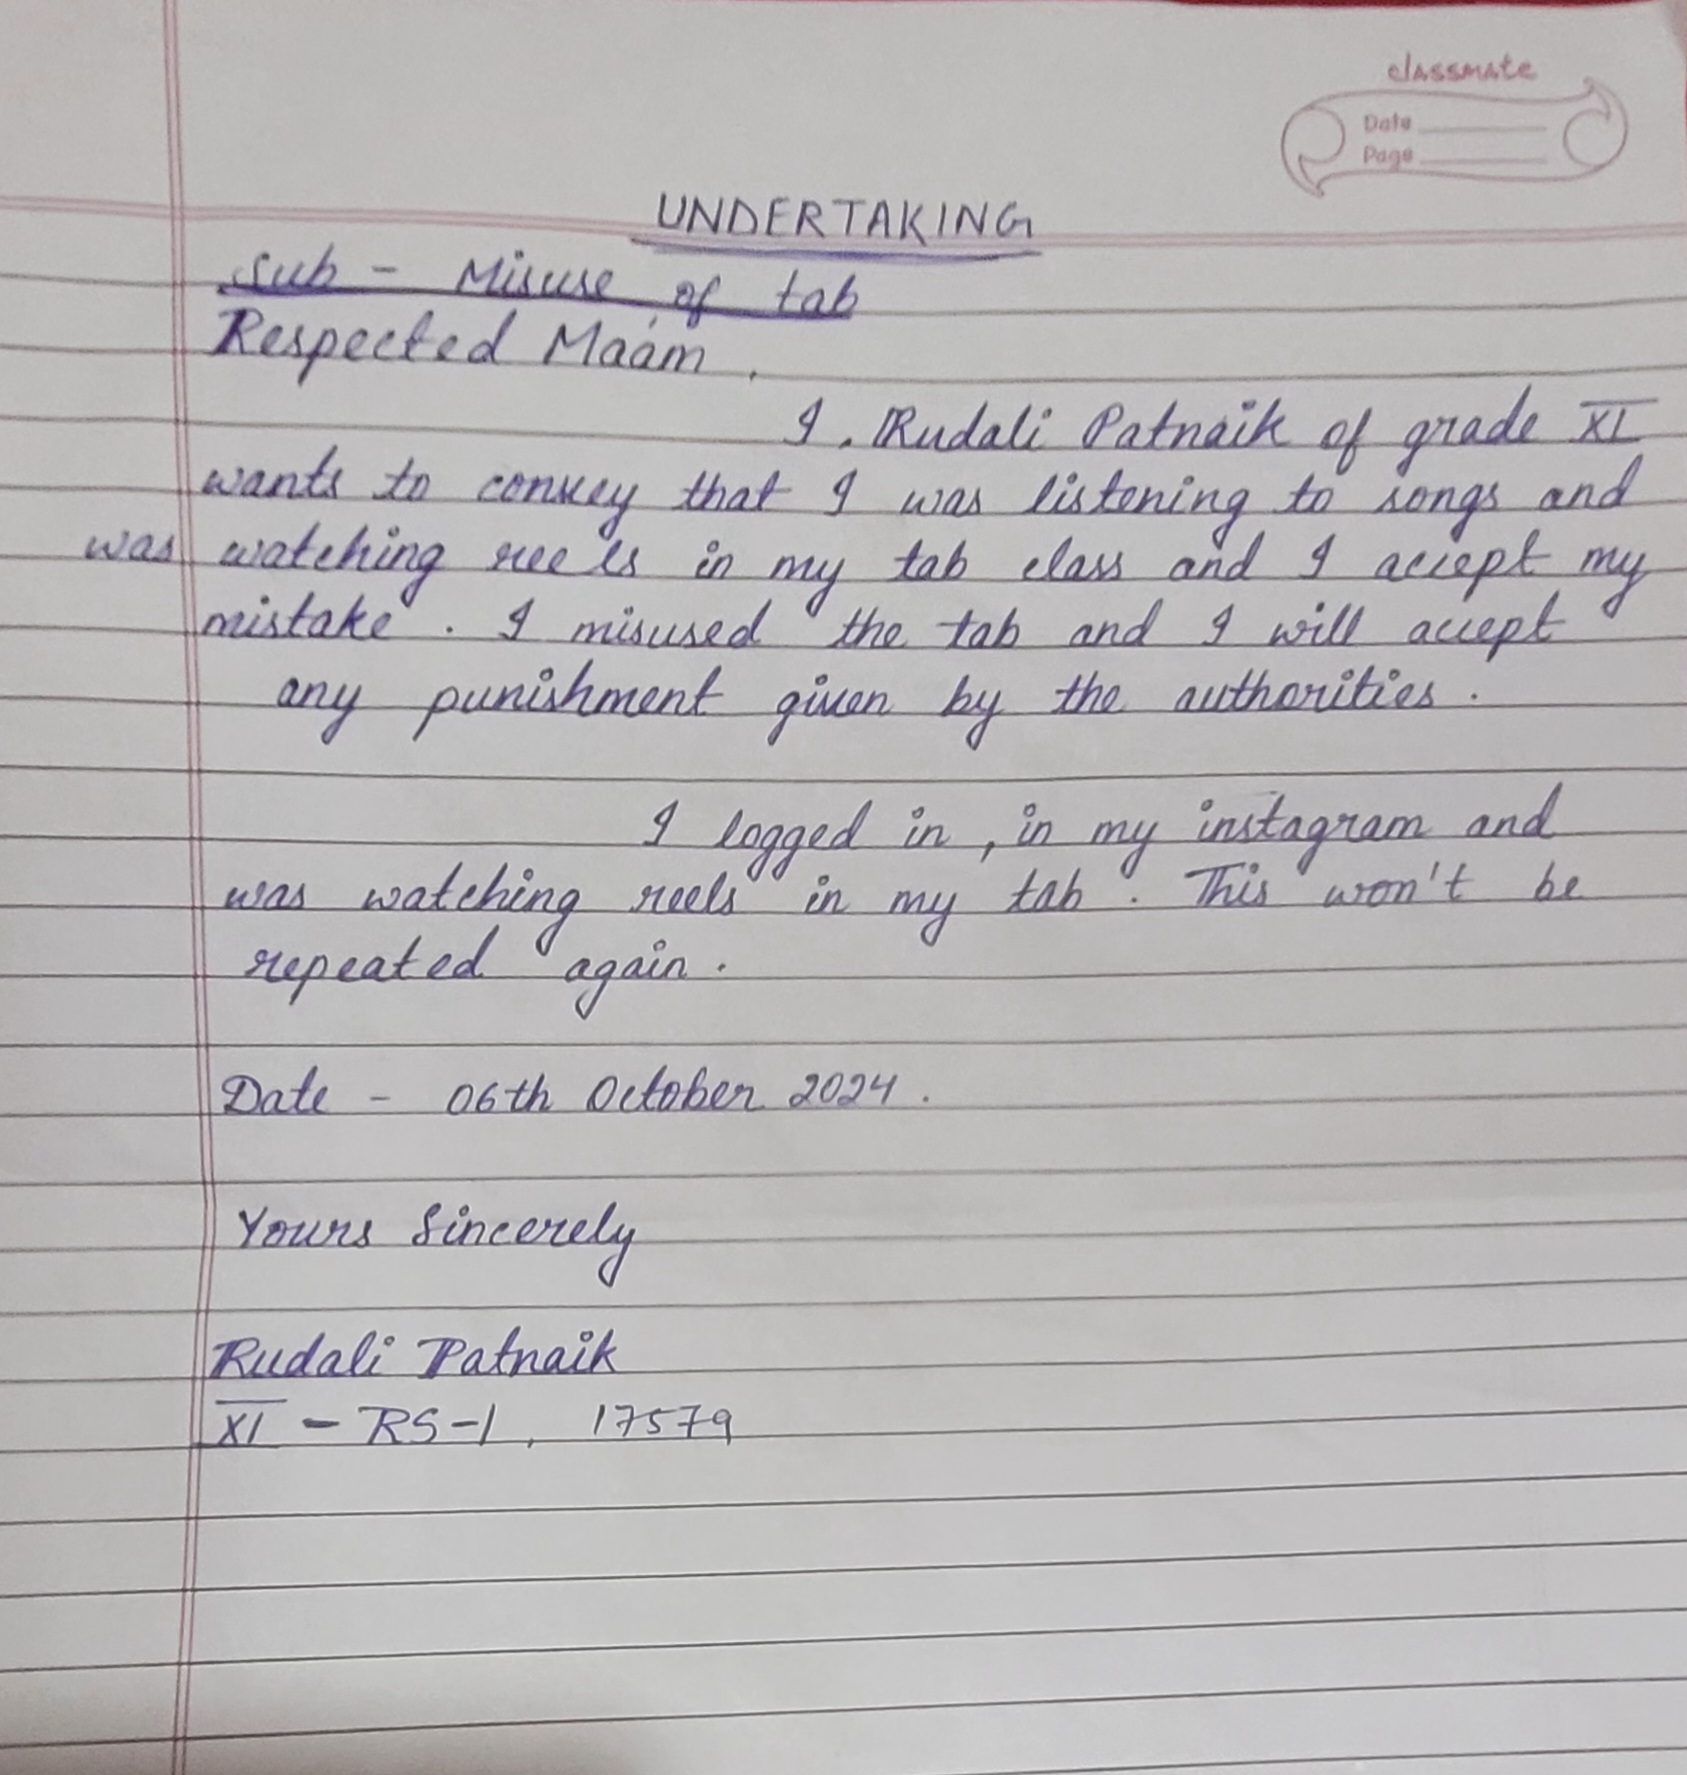 classmate
Date
Page
UNDERTAKING
Sub - Misuse of tab
Respected Ma'am,
I, Rudali Patnaik of grade XI
wants to convey that I was listening to songs and
was watching reels in my tab class and I accept my
mistake. I misused the tab and I will accept
any punishment given by the authorities.
I logged in, in my instagram and
was watching reels in my tab. This won't be
repeated again.
Date - 06th October 2024.
Yours Sincerely
Rudali Patnaik
XI - RS-1, 17579